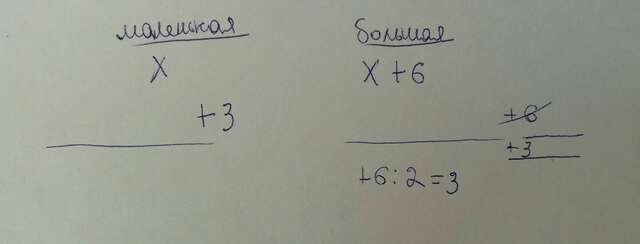 маленькая большая
x x+6
+3 +6
+3
+6:2=3